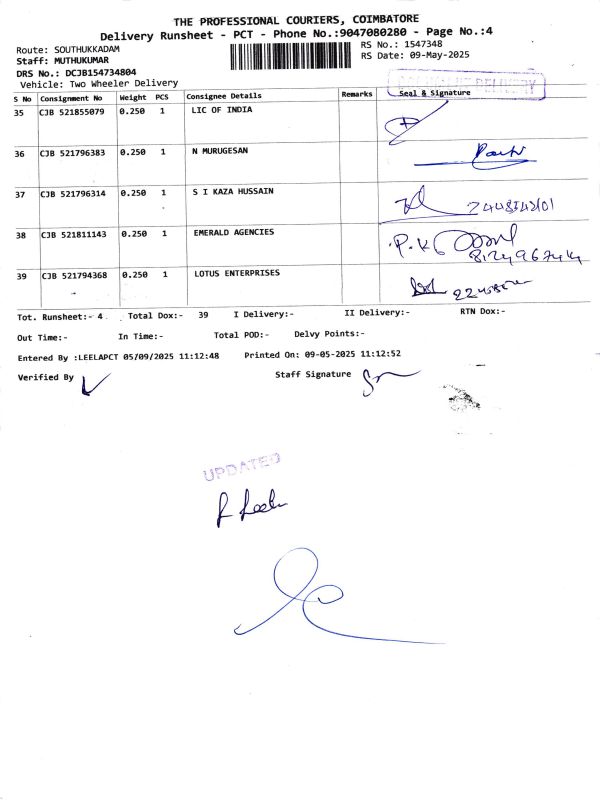 THE PROFESSIONAL COURIERS, COIMBATORE
Delivery Runsheet - PCT - Phone No.:9047080280 - Page No.:4
Route: SOUTHUKKADAM RS No.: 1547348
Staff: MUTHUKUMAR RS Date: 09-May-2025
DRS No.: DCJB154734804
Vehicle: Two Wheeler Delivery
S No Consignment No Weight PCS Consignee Details Remarks Seal & Signature
35 CJB 521855079 0.250 1 LIC OF INDIA
36 CJB 521796383 0.250 1 N MURUGESAN
37 CJB 521796314 0.250 1 S I KAZA HUSSAIN
38 CJB 521811143 0.250 1 EMERALD AGENCIES
39 CJB 521794368 0.250 1 LOTUS ENTERPRISES
Tot. Runsheet:- 4 Total Dox:- 39 I Delivery:- II Delivery:- RTN Dox:-
Out Time:- In Time:- Total POD:- Delvy Points:-
Entered By :LEELAPCT 05/09/2025 11:12:48 Printed On: 09-05-2025 11:12:52
Verified By Staff Signature
UPDATED